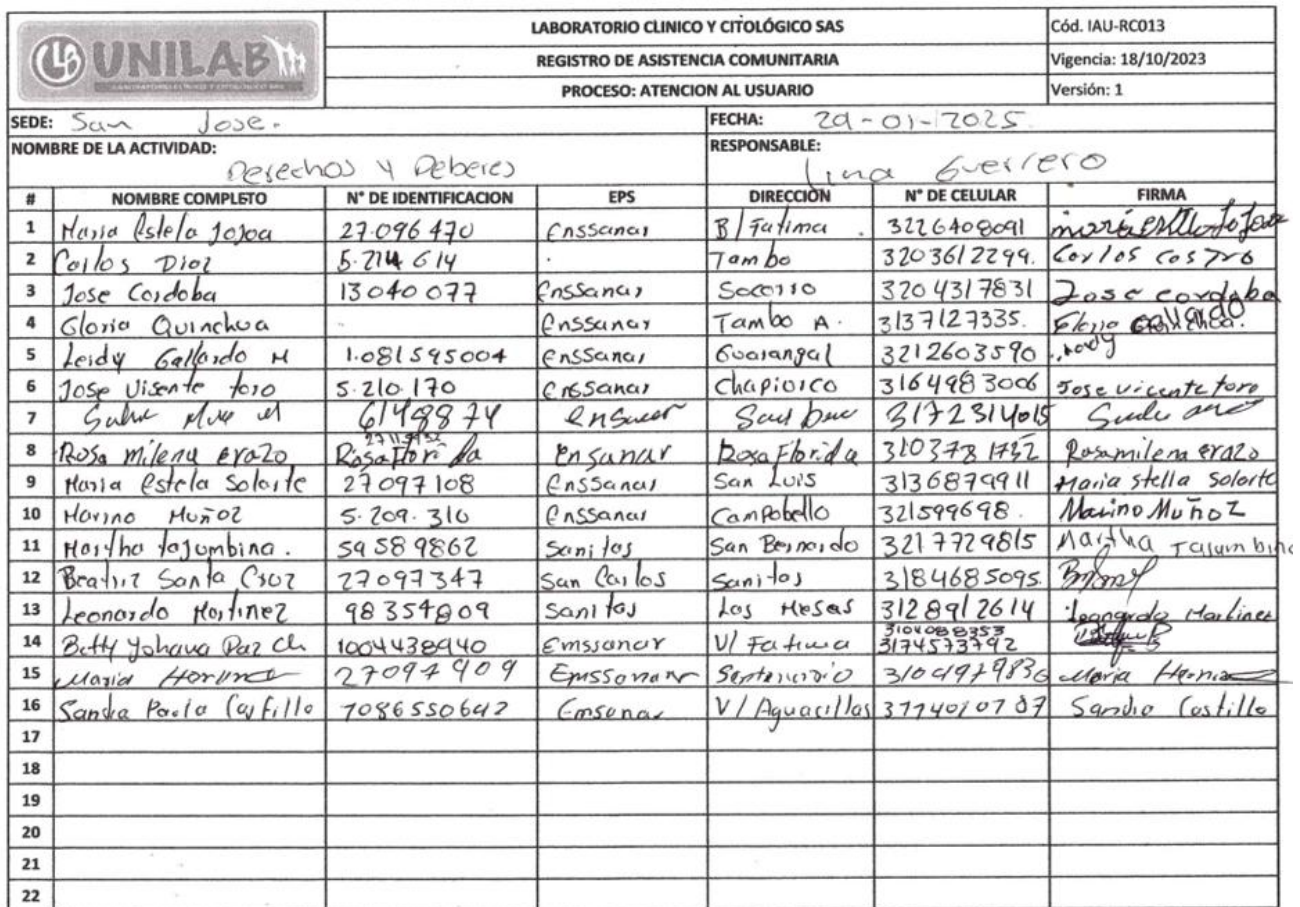 UNILAB
LABORATORIO CLINICO Y CITOLÓGICO SAS
Cód. IAU-RC013
REGISTRO DE ASISTENCIA COMUNITARIA
Vigencia: 18/10/2023
PROCESO: ATENCION AL USUARIO
Versión: 1
SEDE: San Jose. FECHA: 29-01-2025
NOMBRE DE LA ACTIVIDAD: RESPONSABLE:
Derechos y Deberes Lina Guerrero
# NOMBRE COMPLETO N° DE IDENTIFICACION EPS DIRECCIÓN N° DE CELULAR FIRMA
1 Maria Estela Jojoa 27.096470 Enssanar B/ Fatima 3226408091
2 Carlos Diaz 5.214614 Tambo 3203612299. Carlos Castro
3 Jose Cordoba 13040077 Enssanar Socorro 3204317831 Jose cordoba
4 Gloria Quinchua Enssanar Tambo A. 3137127335.
5 Leidy Gallardo M 1.081595004 Enssanar Guarangal 3212603590 Leidy Gallardo
6 Jose Visente toro 5.210.170 Enssanar Chapiorco 3164983006 Jose vicente toro
7 6148874 3172314015
8 Rosa milena erazo Rosa Florida Ensanar Rosa Florida 3103781752 Rosa milena erazo
9 Maria Estela Solarte 27097108 Enssanar San Luis 3136879911 Maria stella Solarte
10 Marino Muñoz 5.209.310 Enssanar Campobello 321599698. Marino Muñoz
11 Martha tajumbina. 59589862 Sanitas San Bernardo 3217729815 Martha Tajumbina
12 Beatriz Santa Cruz 27097347 San Carlos Sanitas 3184685095.
13 Leonardo Martinez 98354809 Sanitas Las Mesas 3128912614 Leonardo Martinez
14 Betty Yohana Paz Ch 1004438940 Emssanar V/ Fatima 3104088353 3174573792
15 Maria 27097909 Emssanar 3104979836 Maria
16 Sandra Paola Castillo 1086550642 Emsanar V/ Aguacillas 3174010787 Sandra Castillo
17
18
19
20
21
22